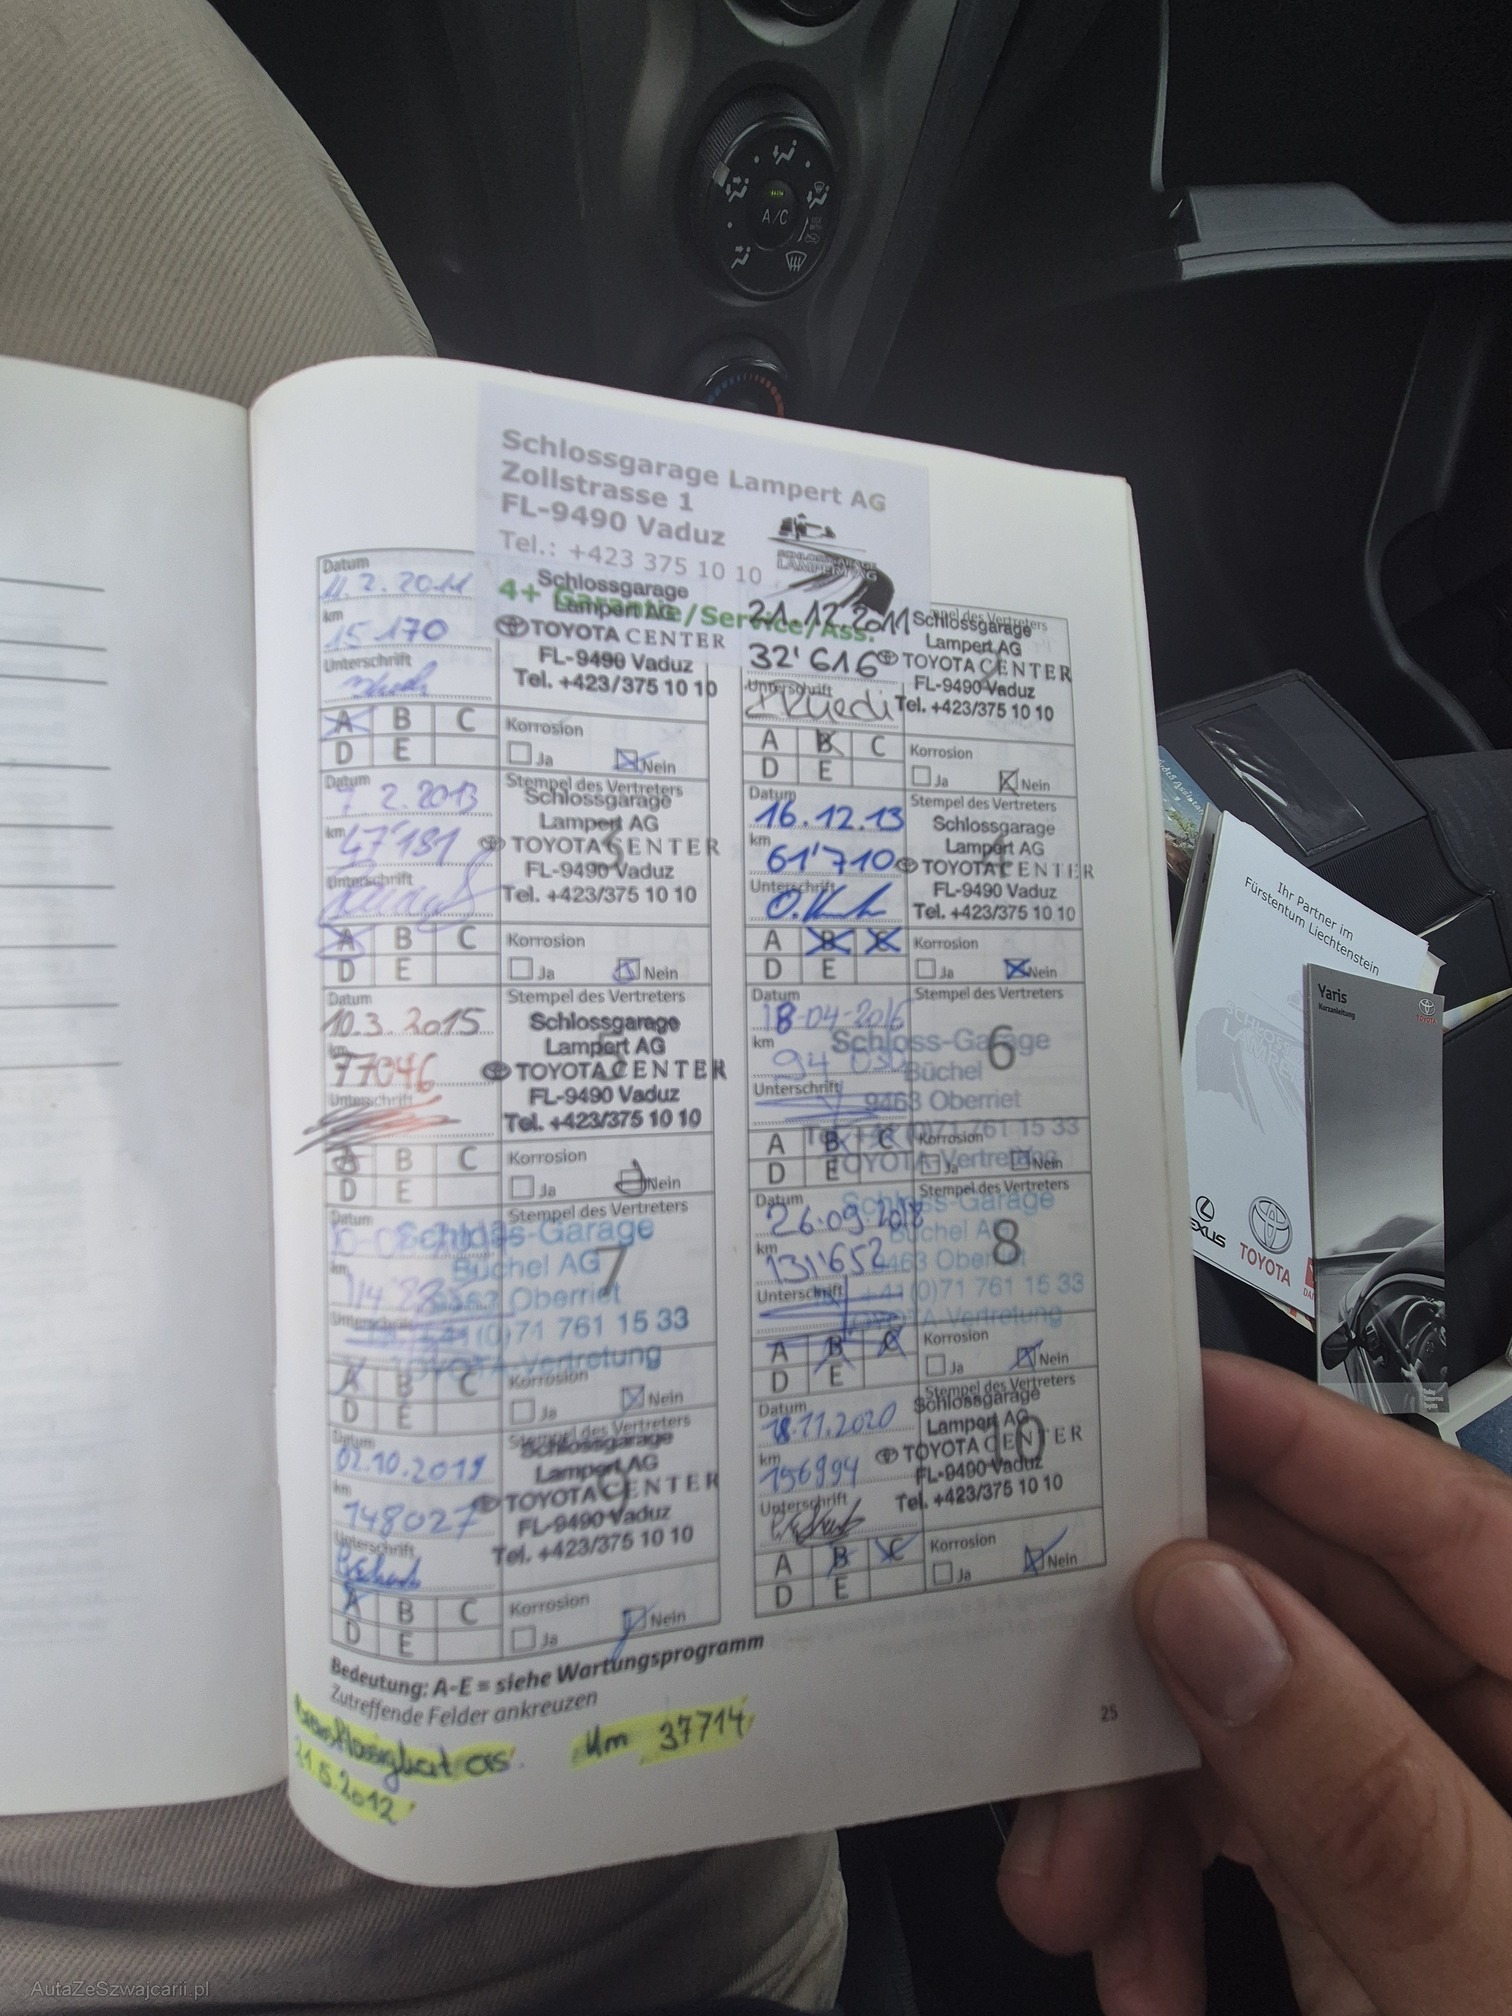 A/C
Schlossgarage Lampert AG
Zollstrasse 1
FL-9490 Vaduz
Tel.: +423 375 10 10
SCHLOSSGARAGE
LAMPERT AG
4+ Garantie/Service/Ass.
Datum
11.2.2011
km
15 170
Unterschrift
Schlossgarage
Lampert AG
TOYOTA CENTER
FL-9490 Vaduz
Tel. +423/375 10 10
A B C
D E
Korrosion
Ja Nein
21.12.2011
32'616
Unterschrift
Stempel des Vertreters
Schlossgarage
Lampert AG
TOYOTA CENTER
FL-9490 Vaduz
Tel. +423/375 10 10
A B C
D E
Korrosion
Ja Nein
Datum
7 2.2013
km
47'181
Unterschrift
Stempel des Vertreters
Schlossgarage
Lampert AG
TOYOTA CENTER
FL-9490 Vaduz
Tel. +423/375 10 10
A B C
D E
Korrosion
Ja Nein
Datum
16.12.13
km
61'710
Unterschrift
Stempel des Vertreters
Schlossgarage
Lampert AG
TOYOTA CENTER
FL-9490 Vaduz
Tel. +423/375 10 10
A B C
D E
Korrosion
Ja Nein
Datum
10.3.2015
km
77046
Unterschrift
Stempel des Vertreters
Schlossgarage
Lampert AG
TOYOTA CENTER
FL-9490 Vaduz
Tel. +423/375 10 10
A B C
D E
Korrosion
Ja Nein
Datum
18-04-2016
km
94
Unterschrift
Stempel des Vertreters
6
Schloss-Garage
Büchel
9463 Oberriet
(0)71 761 15 33
TOYOTA-Vertretung
A B C
D E
Korrosion
Ja Nein
Datum
km
Unterschrift
Stempel des Vertreters
7
Schloss-Garage
Büchel AG
Oberriet
(0)71 761 15 33
TOYOTA-Vertretung
A B C
D E
Korrosion
Ja Nein
Datum
26.09.2018
km
131'652
Unterschrift
Stempel des Vertreters
8
Schloss-Garage
Büchel AG
9463 Oberriet
+41(0)71 761 15 33
TOYOTA-Vertretung
A B C
D E
Korrosion
Ja Nein
Datum
02.10.2019
km
148027
Unterschrift
Stempel des Vertreters
Schlossgarage
Lampert AG
TOYOTA CENTER
FL-9490 Vaduz
Tel. +423/375 10 10
A B C
D E
Korrosion
Ja Nein
Datum
18.11.2020
km
156994
Unterschrift
Stempel des Vertreters
10
Schlossgarage
Lampert AG
TOYOTA CENTER
FL-9490 Vaduz
Tel. +423/375 10 10
A B C
D E
Korrosion
Ja Nein
Bedeutung: A-E = siehe Wartungsprogramm
Zutreffende Felder ankreuzen
km 37714
21.5.2012
25
Ihr Partner im
Fürstentum Liechtenstein
LEXUS
TOYOTA
Yaris
Kurzanleitung
TOYOTA
Today
Tomorrow
Toyota
AutaZeSzwajcarii.pl